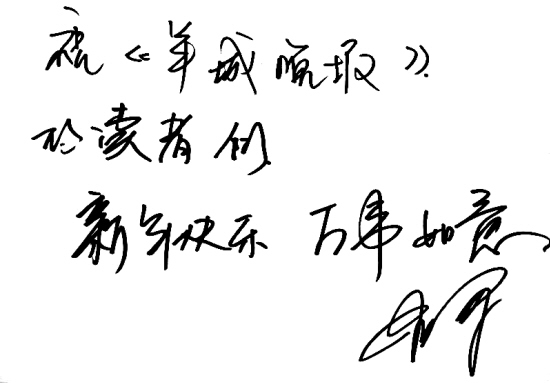 祝《羊城晚报》
的读者们
新年快乐 万事如意